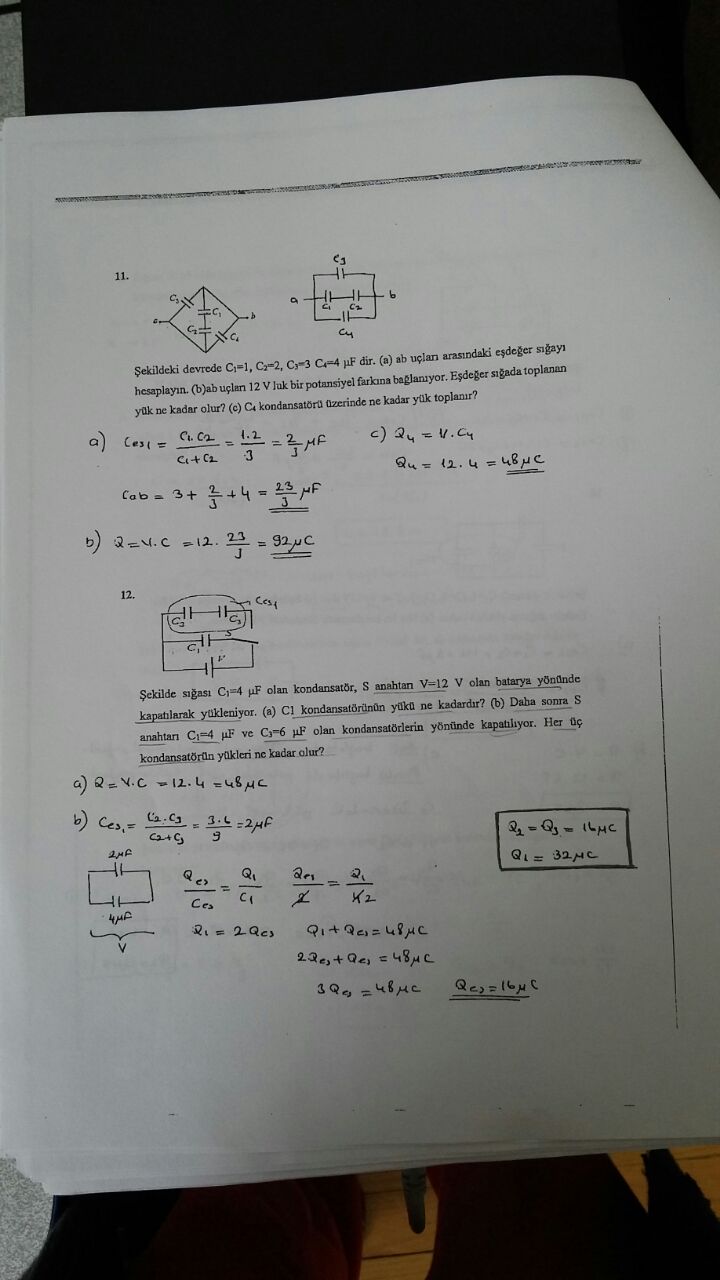 11.
C3
C1
C2
C4
a
b
C3
a
C1
C2
b
C4
Şekildeki devrede C1=1, C2=2, C3=3 C4=4 µF dir. (a) ab uçları arasındaki eşdeğer sığayı
hesaplayın. (b)ab uçları 12 V luk bir potansiyel farkına bağlanıyor. Eşdeğer sığada toplanan
yük ne kadar olur? (c) C4 kondansatörü üzerinde ne kadar yük toplanır?
a) Ceş1 = C1.C2 / C1+C2 = 1.2 / 3 = 2/3 µF
Cab = 3 + 2/3 + 4 = 23/3 µF
c) Q4 = V.C4
Q4 = 12.4 = 48µC
b) Q=V.C = 12. 23/3 = 92µC
12.
Ceş1
C2
C3
S
C1
V
Şekilde sığası C1=4 µF olan kondansatör, S anahtarı V=12 V olan batarya yönünde
kapatılarak yükleniyor. (a) C1 kondansatörünün yükü ne kadardır? (b) Daha sonra S
anahtarı C1=4 µF ve C3=6 µF olan kondansatörlerin yönünde kapatılıyor. Her üç
kondansatörün yükleri ne kadar olur?
a) Q=V.C =12.4 =48µC
b) Ceş1 = C2.C3 / C2+C3 = 3.6 / 9 = 2µF
Q2 = Q3 = 16µC
Q1 = 32µC
2µF
4µF
V
Qeş / Ceş = Q1 / C1
Qeş / 2 = Q1 / 4 2
Q1 = 2Qeş
Q1 + Qeş = 48µC
2Qeş + Qeş = 48µC
3Qeş = 48µC
Qeş = 16µC